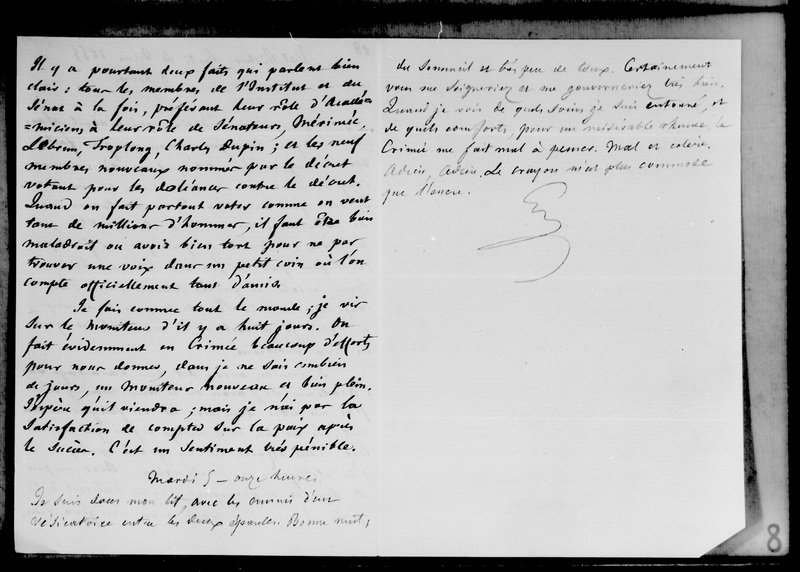 Il y a pourtant deux faits qui parlent bien
clair : tous les membres de l'Institut et du
Sénat à la fois, préférant leur rôle d'Acadé
=miciens à leur rôle de Sénateurs, Mérimée,
Lebrun, Troplong, Charles Dupin ; et les neuf
membres nouveaux nommés par le décret
votant pour les doléances contre le décret.
Quand on fait partout voter comme on veut
tant de millions d'hommes, il faut être bien
maladroit ou avoir bien tort pour ne pas
trouver une voix dans un petit coin où l'on
compte officiellement tant d'amis.
Je fais comme tout le monde ; je vis
sur le Moniteur d'il y a huit jours. On
fait évidemment en Crimée beaucoup d'efforts
pour nous donner, dans je ne sais combien
de jours, un Moniteur nouveau et bien plein.
J'espère qu'il viendra ; mais je n'ai pas la
satisfaction de compter sur la paix après
le succès. C'est un sentiment très pénible.
Mardi 5 - onze heures.
Je suis dans mon lit, avec les ennuis d'un
vésicatoire entre les deux épaules. Bonne nuit ;
du sommeil et très peu de toux. Certainement
vous me soigneriez et me gouverneriez très bien.
Quand je vois de quels soins je suis entouré, et
de quels comforts, pour un misérable rhume, la
Crimée me fait mal à penser. Mal et colère.
Adieu, Adieu. Le crayon n'est plus commode
que l'encre.
8